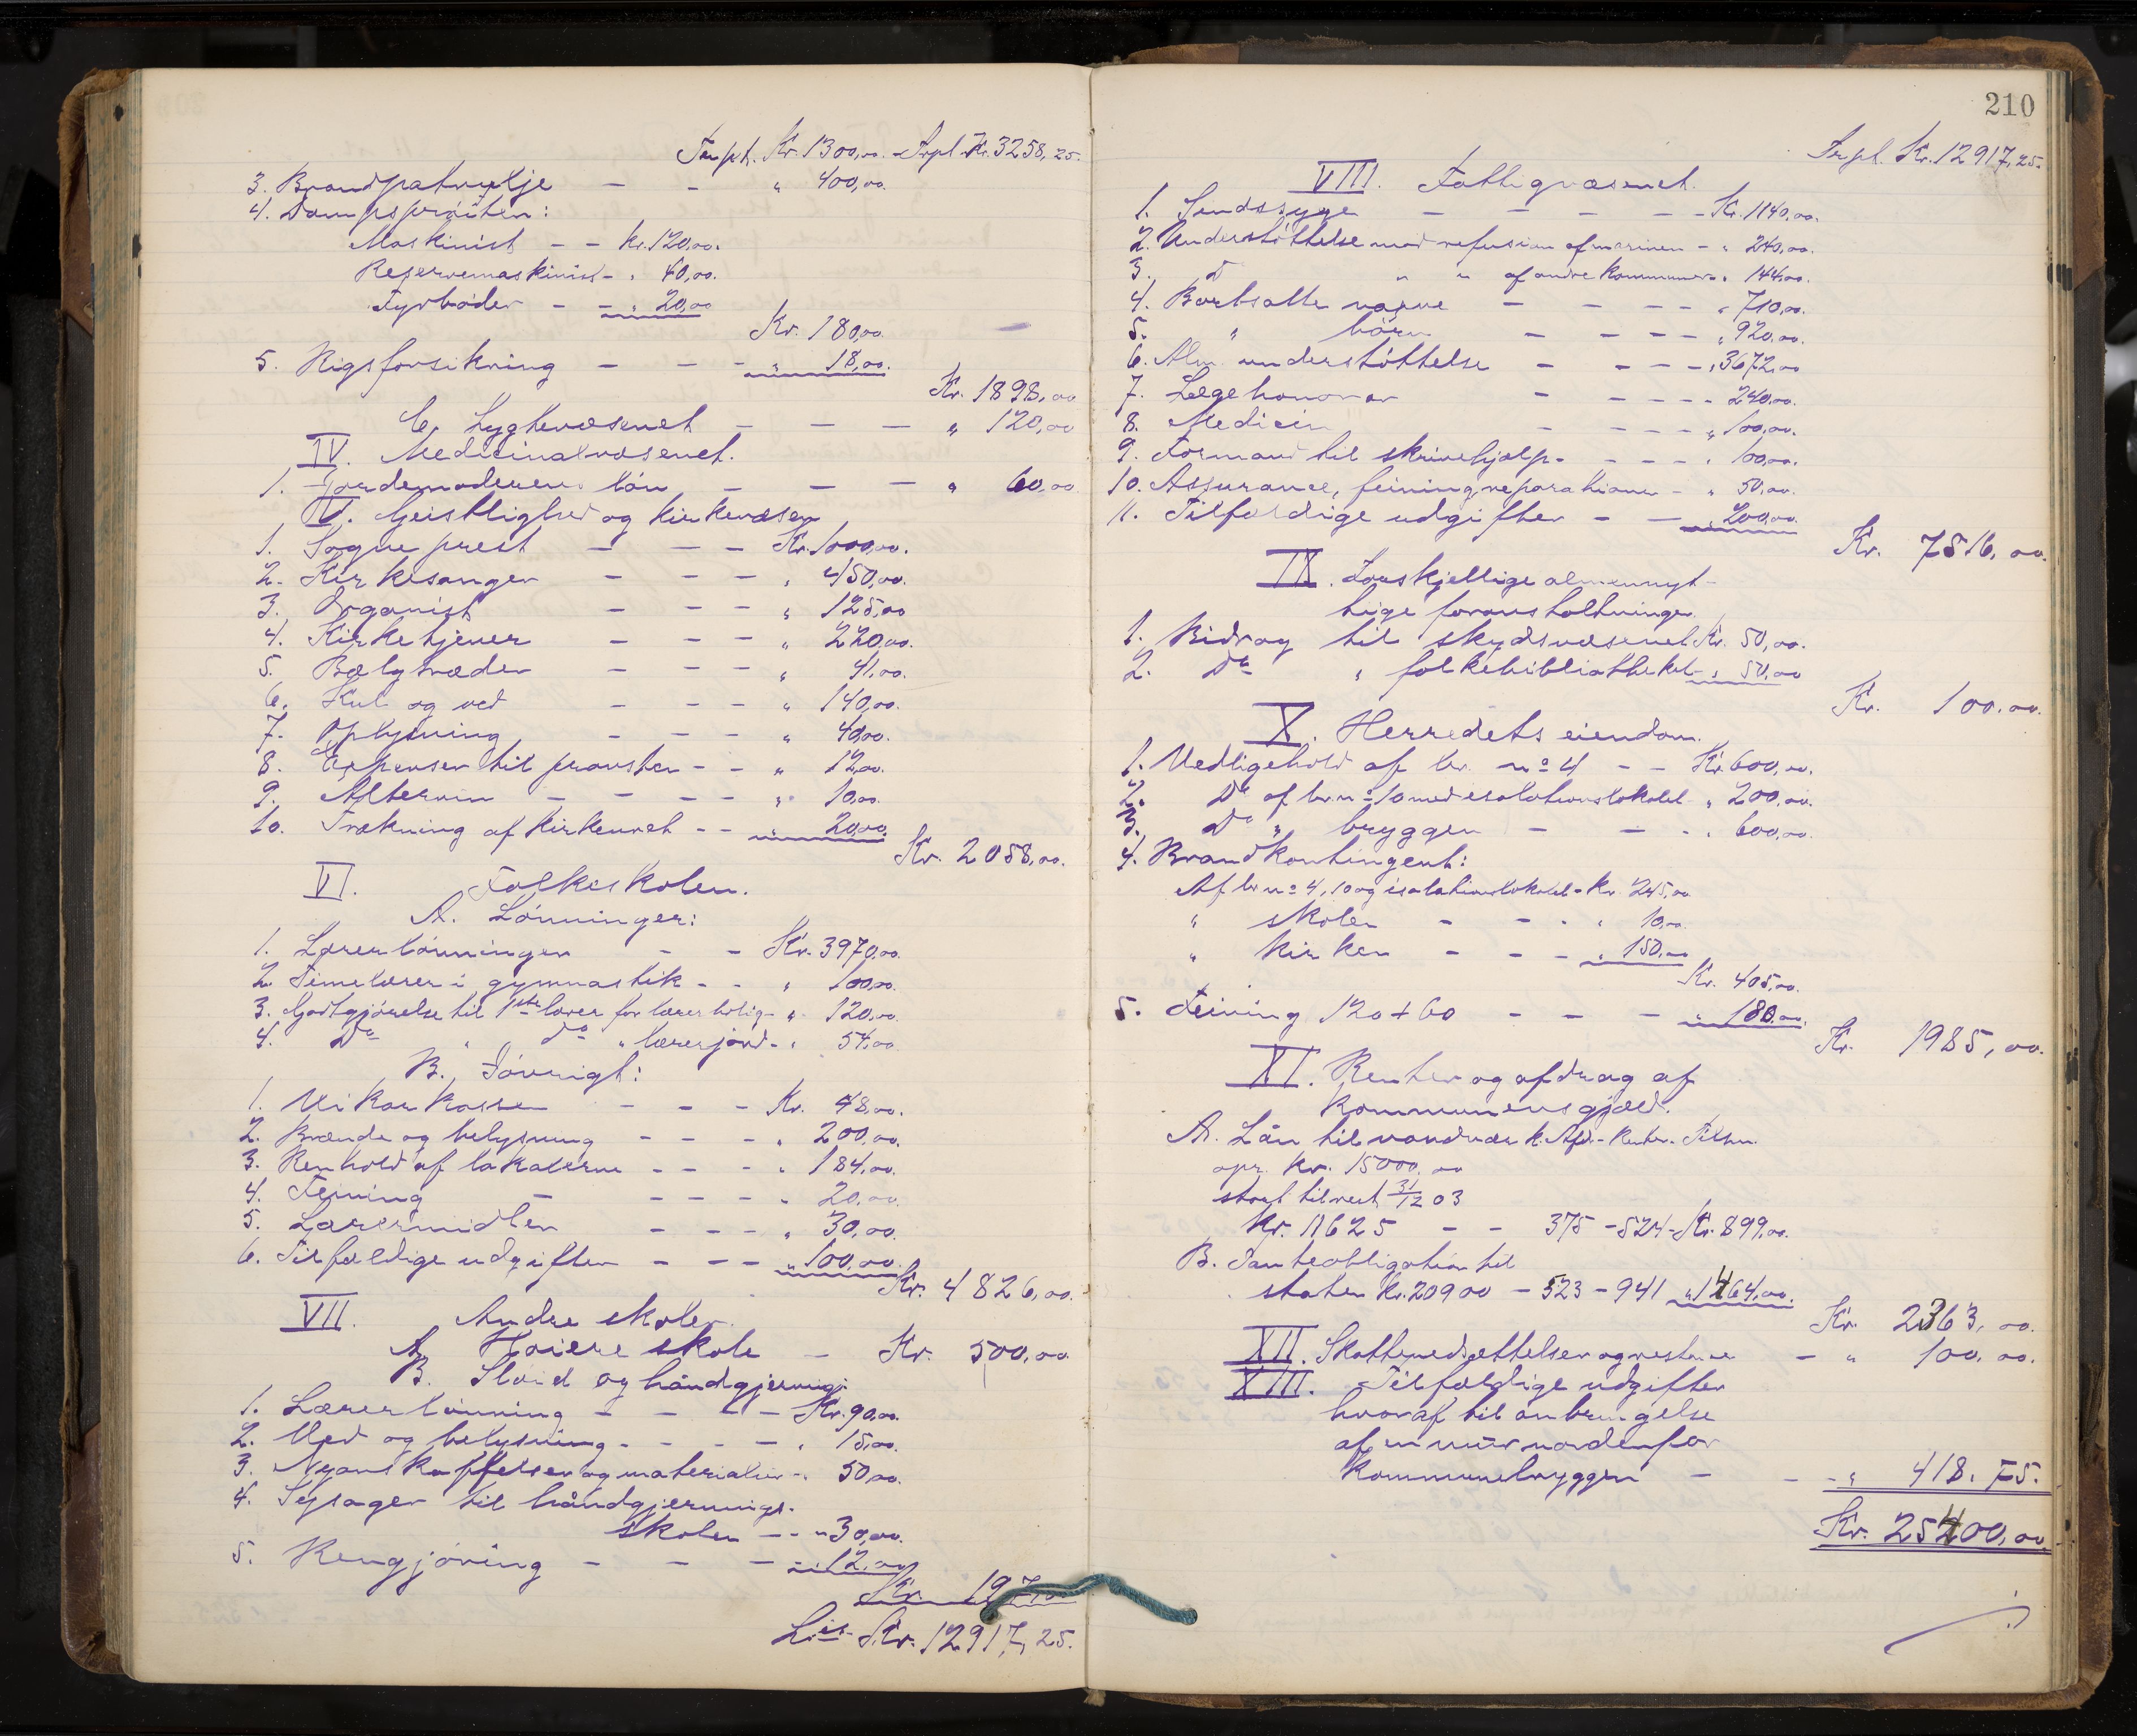 Trspt. Kr. 1300,00. - Trspt. Kr. 3258,25.
3. Brandpatrulje - - " 400,00.
4. Dampsprøiten:
Maskinist - - Kr. 120,00.
Reservemaskinist - " 40,00.
Fyrbøder - - " 20,00
Kr. 180,00.
5. Rigsforsikring - - - " 18,00.
Kr. 1898,00
C. Lygtevæsenet - - - " 120,00
IV. Medicinalvæsenet.
1. Jordemoderens løn - - - " 60,00
V. Geistlighed og kirkevæsen
1. Sogneprest - - - Kr. 1000,00.
2. Kirkesanger - - - " 450,00.
3. Organist - - - " 125,00
4. Kirketjener - - - " 220,00.
5. Bælgtræder - - - " 41,00.
6. Kul og ved - - - " 140,00.
7. Oplysning - - - " 40,00.
8. Expenser til provsten - - " 12,00.
9. Altervin - - - - " 10,00.
10. Trækning af kirkeuret - - " 20,00.
Kr. 2058,00.
VI. Folkeskolen.
A. Lønninger:
1. Lærerlønningen - - Kr. 3970,00.
2. Timelærer i gymnastik - - " 100,00.
3. Godtgjørelse til 1ste lærer for lærerbolig - " 120,00
4. Do " do " lærerjord - " 54,00
B. Iøvrigt:
1. Vikarkassen - - - Kr. 48,00.
2. Brænde og belysning - - - " 200,00.
3. Renhold af lokalerne - - - " 184,00.
4. Feining - - - - " 20,00.
5. Læremidler - - - " 30,00.
6. Tilfældige udgifter - - - " 100,00.
Kr. 4826,00.
VII. Andre skoler.
A. Høiere skole - Kr. 500,00
B. Sløid og håndgjerning:
1. Lærerlønning - - - - Kr. 90,00.
2. Ved og belysning - - - - " 15,00.
3. Nyanskaffelser og materialier - " 50,00.
4. Sysager til håndgjernings-
skolen - - " 30,00.
5. Rengjøring - - - " 12,00
Kr. 197,00
Lis. Kr. 12917,25.
210
Trspt. Kr. 12917,25.
VIII. Fattigvæsenet.
1. Sindssyge - - - - - Kr. 1140,00.
2. Understøttelse med refusion af marinen - " 240,00.
3. Do " " af andre kommuner " 144,00.
4. Bortsatte voxne - - - - " 710,00.
5. " børn - - - - " 920,00.
6. Alm. understøttelse - - - - " 3672,00
7. Lægehonorar - - - - - 240,00.
8. Medicin - - - - " 100,00.
9. Formand til skrivehjælp - - - - " 100,00.
10. Assurance, feining, reparationer - " 50,00.
11. Tilfældige udgifter - - " 200,00.
Kr. 7516,00.
IX. Forskjellige almennyt-
tige foranstaltninger
1. Bidrag til skydsvæsenet Kr. 50,00.
2. Do " folkebibliotheket - " 50,00
Kr. 100.00.
X. Herredets eiendom.
1. Vedligehold af br. no 4 - - Kr. 600,00.
2. Do af br. no 10 med isolationslokalet " 200,00.
3. Do " bryggen - - - " 600,00
4. Brandkontingent:
Af br. no 4, 10 og isolationslokalet - Kr. 245,00
" skolen - - - " 10,00
" kirken - - - " 150,00
Kr. 405,00.
5. Feining 120 + 60 - - - " 180.00.
Kr. 1985,00.
XI. Renter og afdrag af
kommunens gjæld.
A. Lån til vandværk. Afd. - Renter. Tilsm.
opr. Kr. 15000,00
stort til rest 31/12 03
Kr. 11625 - - 375 - 524 - Kr. 899,00.
B. Panteobligation til
staten Kr. 20900 - 523 - 941 " 1464,00.
Kr. 2363,00.
XII. Skattenedsættelser og restance - " 100,00.
XIII. Tilfældige udgifter
hvoraf til anbringelse
af en mur nordenfor
kommunebryggen - - - " 418,75.
Kr. 25400,00.